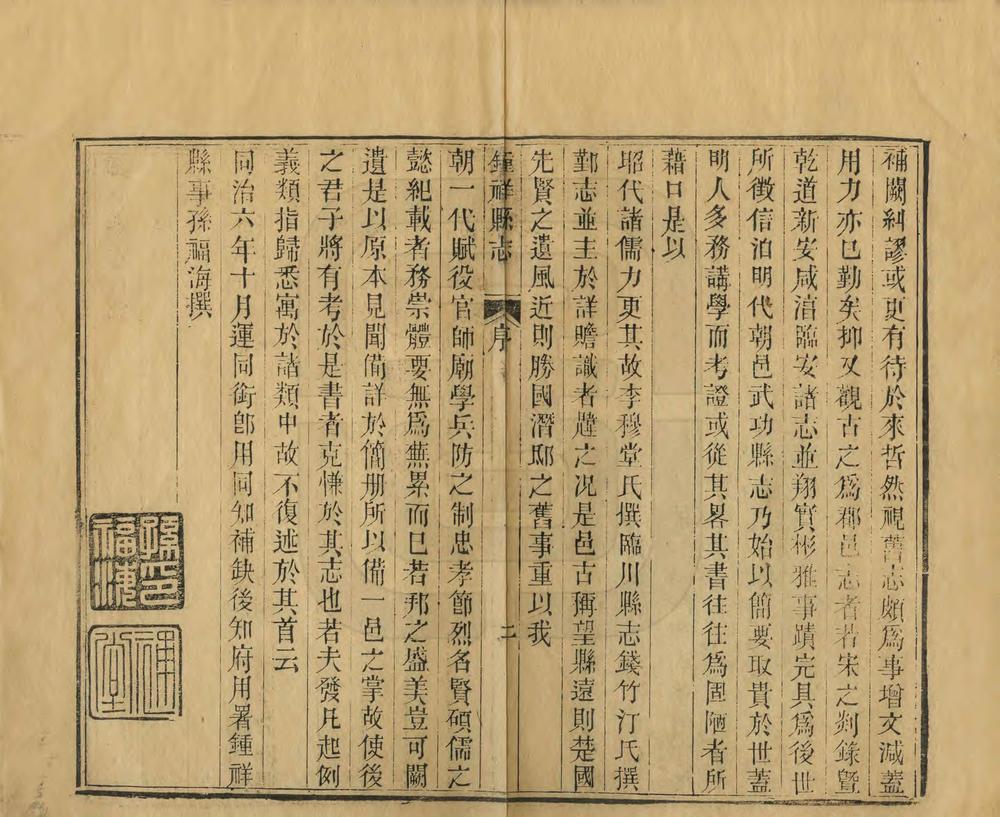 補闕糾謬或更有待於來哲然視舊志頗爲事增文減蓋
用力亦已勤矣抑又觀古之爲郡邑志者若宋之剡錄暨
乾道新安咸淳臨安諸志並翔實彬雅事蹟完具爲後世
所徵信洎明代朝邑武功縣志乃始以簡要取貴於世蓋
明人多務講學而考證或從其畧其書往往爲固陋者所
藉口是以
昭代諸儒力更其故李穆堂氏撰臨川縣志錢竹汀氏撰
鄞志並主於詳贍識者韙之况是邑古稱望縣遠則楚國
先賢之遺風近則勝國潛邸之舊事重以我
鍾祥縣志 序 二
朝一代賦役官師廟學兵防之制忠孝節烈名賢碩儒之
懿紀載者務崇體要無爲蕪累而已若邦之盛美豈可闕
遺是以原本見聞備詳於簡册所以備一邑之掌故使後
之君子將有考於是書者克慊於其志也若夫發凡起例
義類指歸悉寓於諸類中故不復述於其首云
同治六年十月運同銜卽用同知補缺後知府用署鍾祥
縣事孫福海撰
孫印福海